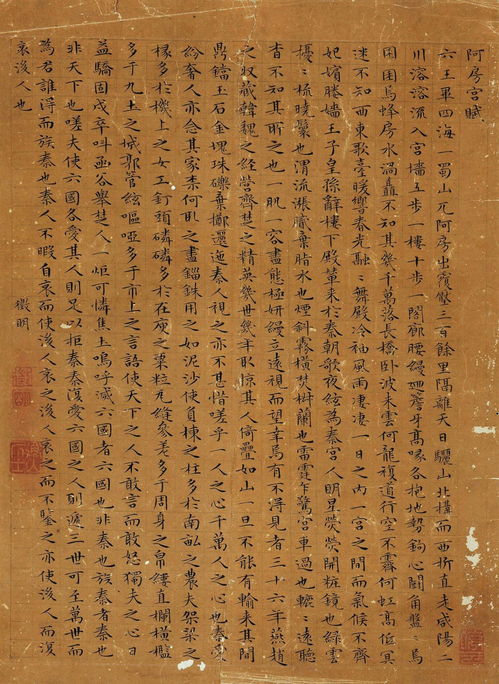 阿房宮賦
六王畢四海一蜀山兀阿房出覆壓三百餘里隔離天日驪山北構而西折直走咸陽二
川溶溶流入宮墻五步一樓十步一閣廊腰縵迴簷牙高啄各抱地勢鉤心鬬角盤〻焉
囷囷焉蜂房水渦矗不知其幾千萬落長橋臥波未雲何龍複道行空不霽何虹高低冥
迷不知西東歌臺暖響春光融〻舞殿冷袖風雨凄凄一日之內一宮之間而氣候不齊
妃嬪媵嬙王子皇孫辭樓下殿輦來於秦朝歌夜絃為秦宮人明星熒熒開粧鏡也綠雲
擾〻梳曉鬟也渭流漲膩棄脂水也煙斜霧橫焚椒蘭也雷霆乍驚宮車過也轆〻遠聽
杳不知其所之也一肌一容盡態極妍縵立遠視而望幸焉有不得見者三十六年燕趙
之收藏韓魏之經營齊楚之精英幾世幾年取掠其人倚疊如山一旦不能有輸來其間
鼎鐺玉石金塊珠礫棄擲邐迤秦人視之亦不甚惜嗟乎一人之心千萬人之心也秦愛
紛奢人亦念其家柰何取之盡錙銖用之如泥沙使負棟之柱多於南畝之農夫架梁之
椽多於機上之女工釘頭磷磷多於在庾之粟粒瓦縫參差多于周身之帛縷直欄橫檻
多于九土之城郭管絃嘔啞多于市上之言語使天下之人不敢言而敢怒獨夫之心日
益驕固戍卒叫函谷舉楚人一炬可憐焦土嗚呼滅六國者六國也非秦也族秦者秦也
非天下也嗟夫使六國各愛其人則足以拒秦秦復愛六國之人則遞三世可至萬世而
為君誰得而族秦也秦人不暇自哀而使後人哀之後人哀之而不鑒之亦使後人而復
哀後人也
徵明